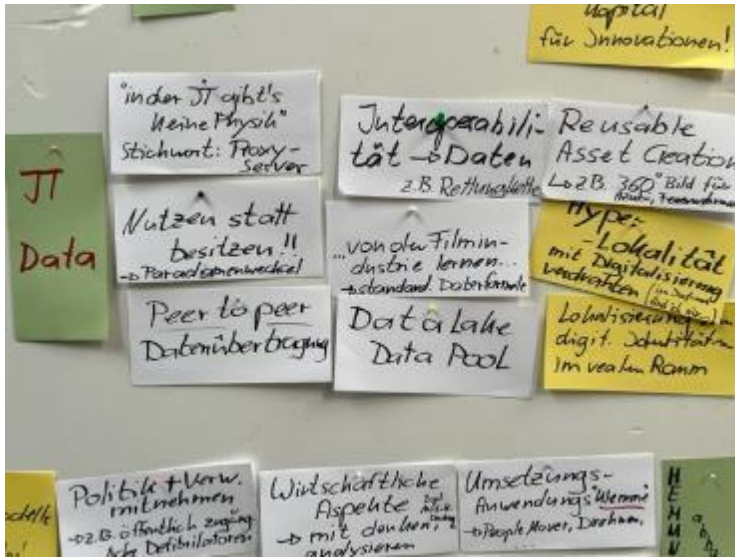 Kapital
für Innovationen!
IT
Data
"in der IT gibt's
keine Physik"
Stichwort: Proxy-
Server
Nutzen statt
besitzen!!
→ Paradigmenwechsel
Peer to peer
Datenübertragung
Interoperabili-
tät → Daten
z.B. Rettungskette
...von der Filmin-
dustrie lernen...
→ standard. Datenformate
Data Lake
Data Pool
Reusable
Asset Creation
↳ z.B. 360° Bild für
Hyper-
-Lokalität
mit Digitalisierung
verdrahten
Lokalisierung
digit. Identität
im realen Raum
Politik + Verw.
mitnehmen
→ z.B. öffentlich
Defibrilatoren
Wirtschaftliche
Aspekte
→ mit denken,
analysieren
Umsetzungs-
Anwendungs
→ People Mover, Drohnen,
H
E
M
M